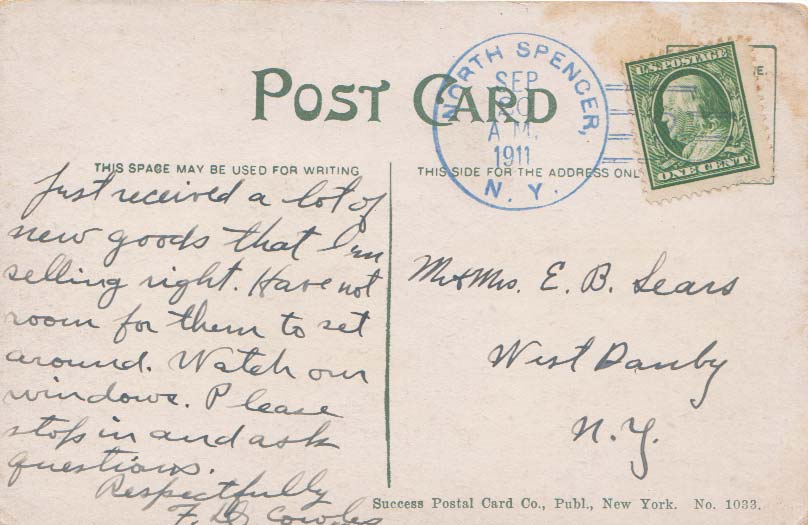 POST CARD
NORTH SPENCER,
SEP
20
A.M.
1911
N. Y.
U.S. POSTAGE
ONE CENT
THIS SPACE MAY BE USED FOR WRITING
THIS SIDE FOR THE ADDRESS ONL
Just received a lot of
new goods that I'm
selling right. Have not
room for them to set
around. Watch our
windows. Please
stop in and ask
questions.
Respectfully
Cowles
Mr & Mrs. E. B. Sears
West Danby
N.Y.
Success Postal Card Co., Publ., New York. No. 1033.